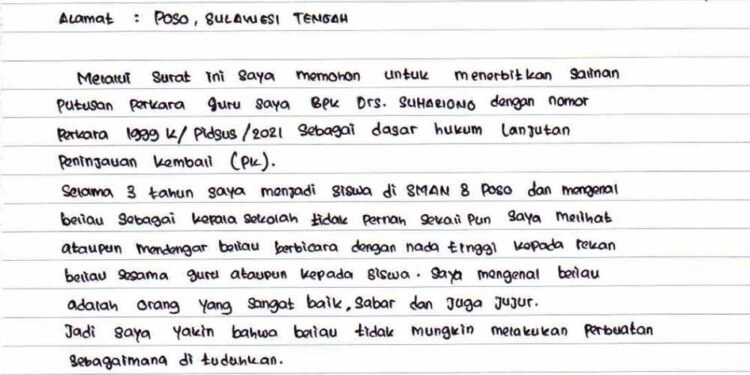 Alamat : Poso, Sulawesi Tengah
Melalui Surat ini saya memohon untuk menerbitkan Salinan
Putusan Perkara guru saya Bpk Drs. Suhariono dengan nomor
Perkara 1999 K/ Pidsus /2021 Sebagai dasar hukum Lanjutan
Peninjauan Kembali (PK).
Selama 3 tahun saya menjadi Siswa di SMAN 8 Poso dan mengenal
beliau Sebagai Kepala Sekolah tidak Pernah Sekali Pun Saya Melihat
ataupun Mendengar beliau berbicara dengan nada tinggi kepada rekan
beliau Sesama guru ataupun kepada Siswa. Saya mengenal beliau
adalah Orang Yang Sangat baik, Sabar dan Juga Jujur.
Jadi Saya Yakin bahwa beliau tidak mungkin melakukan Perbuatan
Sebagaimana di tuduhkan.